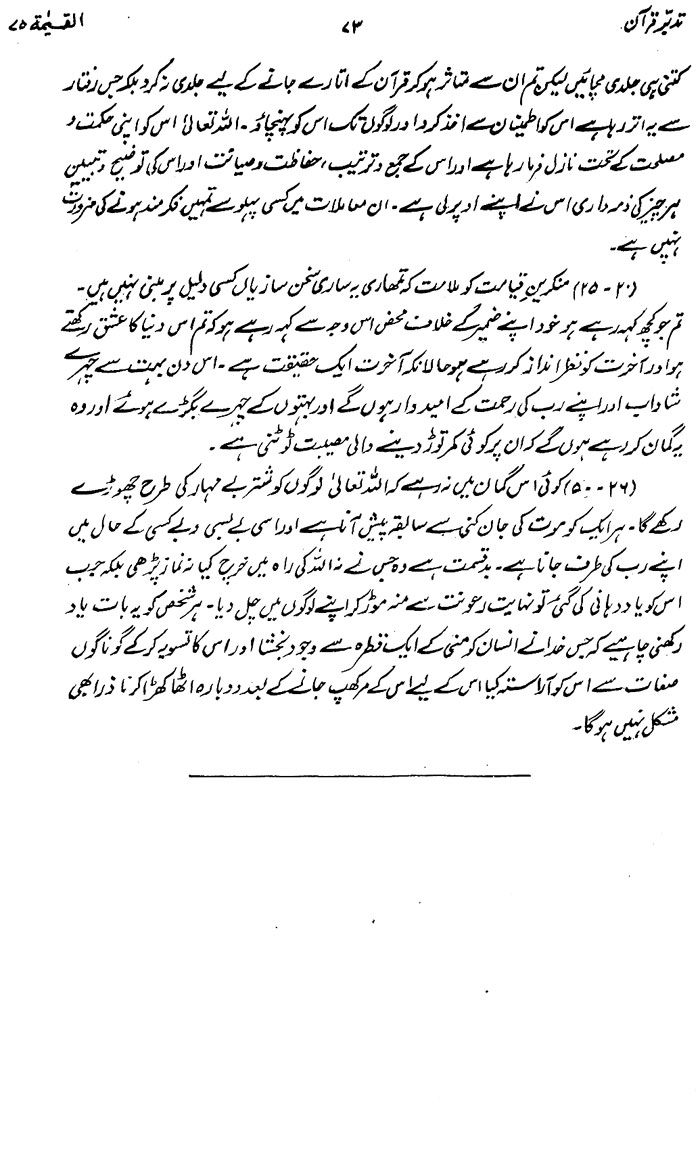 تدبّرِ قرآن ۷۳ القیٰمۃ ۷۵
کتنی ہی جلدی مچائیں لیکن تم ان سے متاثر ہو کر قرآن کے اتارے جانے کے لیے جلدی نہ کرو بلکہ جس رفتار
سے یہ اتر رہا ہے اس کو اطمینان سے اخذ کرو اور لوگوں تک اس کو پہنچاؤ۔ اللہ تعالیٰ اس کو اپنی حکمت و
مصلحت کے تحت نازل فرما رہا ہے اور اس کے جمع و ترتیب، حفاظت و صیانت اور اس کی توضیح و تبیین
ہر چیز کی ذمہ داری اس نے اپنے اوپر لی ہے۔ ان معاملات میں کسی پہلو سے تمہیں فکر مند ہونے کی ضرورت
نہیں ہے۔
(۲۰ - ۲۵) منکرینِ قیامت کو ملامت کہ تمھاری یہ ساری سخن سازیاں کسی دلیل پر مبنی نہیں ہیں۔
تم جو کچھ کہہ رہے ہو خود اپنے ضمیر کے خلاف محض اس وجہ سے کہہ رہے ہو کہ تم اس دنیا کا عشق رکھتے
ہو اور آخرت کو نظر انداز کر رہے ہو حالانکہ آخرت ایک حقیقت ہے۔ اس دن بہت سے چہرے
شاداب اور اپنے رب کی رحمت کے امیدوار ہوں گے اور بہتوں کے چہرے بگڑے ہوئے اور وہ
یہ گمان کر رہے ہوں گے کہ ان پر کوئی کمر توڑ دینے والی مصیبت ٹوٹنی ہے۔
(۲۶ - ۵۰) کوئی اس گمان میں نہ رہے کہ اللہ تعالیٰ لوگوں کو شتر بے مہار کی طرح چھوڑے
رکھے گا۔ ہر ایک کو موت کی جان کنی سے سابقہ پیش آنا ہے اور اسی بے بسی و بے کسی کے حال میں
اپنے رب کی طرف جانا ہے۔ بدقسمت ہے وہ جس نے نہ اللہ کی راہ میں خرچ کیا نہ نماز پڑھی بلکہ جب
اس کو یاد دہانی کی گئی تو نہایت رعونت سے منہ موڑ کر اپنے لوگوں میں چل دیا۔ ہر شخص کو یہ بات یاد
رکھنی چاہیے کہ جس خدا نے انسان کو منی کے ایک قطرہ سے وجود بخشا اور اس کا تسویہ کر کے گوناگوں
صفات سے اس کو آراستہ کیا اس کے لیے اس کے مرکھپ جانے کے بعد دوبارہ اٹھا کھڑا کرنا ذرا بھی
مشکل نہیں ہوگا۔